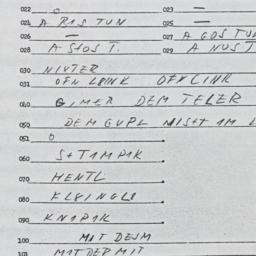 022 O 023 —
024 A RIS TUN 025 —
026 — 027 A GOS TUN
028 A StOS T. 029 A NUS T
030 NIVTER
031 OFN LEINK OFNLINK
040 GIMER DEM TELER
050 DEM GUPL MISET AM
051 O
060 S+TAMPAK
070 HENTL
080 KLEINGLE
090 KNAPAK
100 MIT DEJM
101 MIT DER MIT